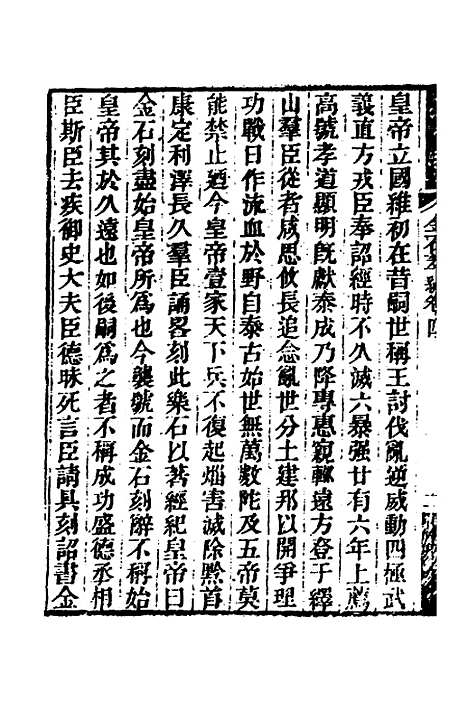 皇帝立國維初在昔嗣世稱王討伐亂逆威動四極武
義直方戎臣奉詔經時不久滅六暴強廿有六年上薦
高號孝道顯明旣獻泰成乃降專惠寴輶遠方登于繹
山羣臣從者咸思攸長追念亂世分土建邦以開爭理
功戰日作流血於野自泰古始世無萬數陀及五帝莫
能禁止廼今皇帝壹家天下兵不復起災害滅除黔首
康定利澤長久羣臣誦畧刻此樂石以著經紀皇帝曰
金石刻盡始皇帝所爲也今襲號而金石刻辭不稱始
皇帝其於久遠也如後嗣爲之者不稱成功盛德丞相
臣斯臣去疾御史大夫臣德昧死言臣請具刻詔書金